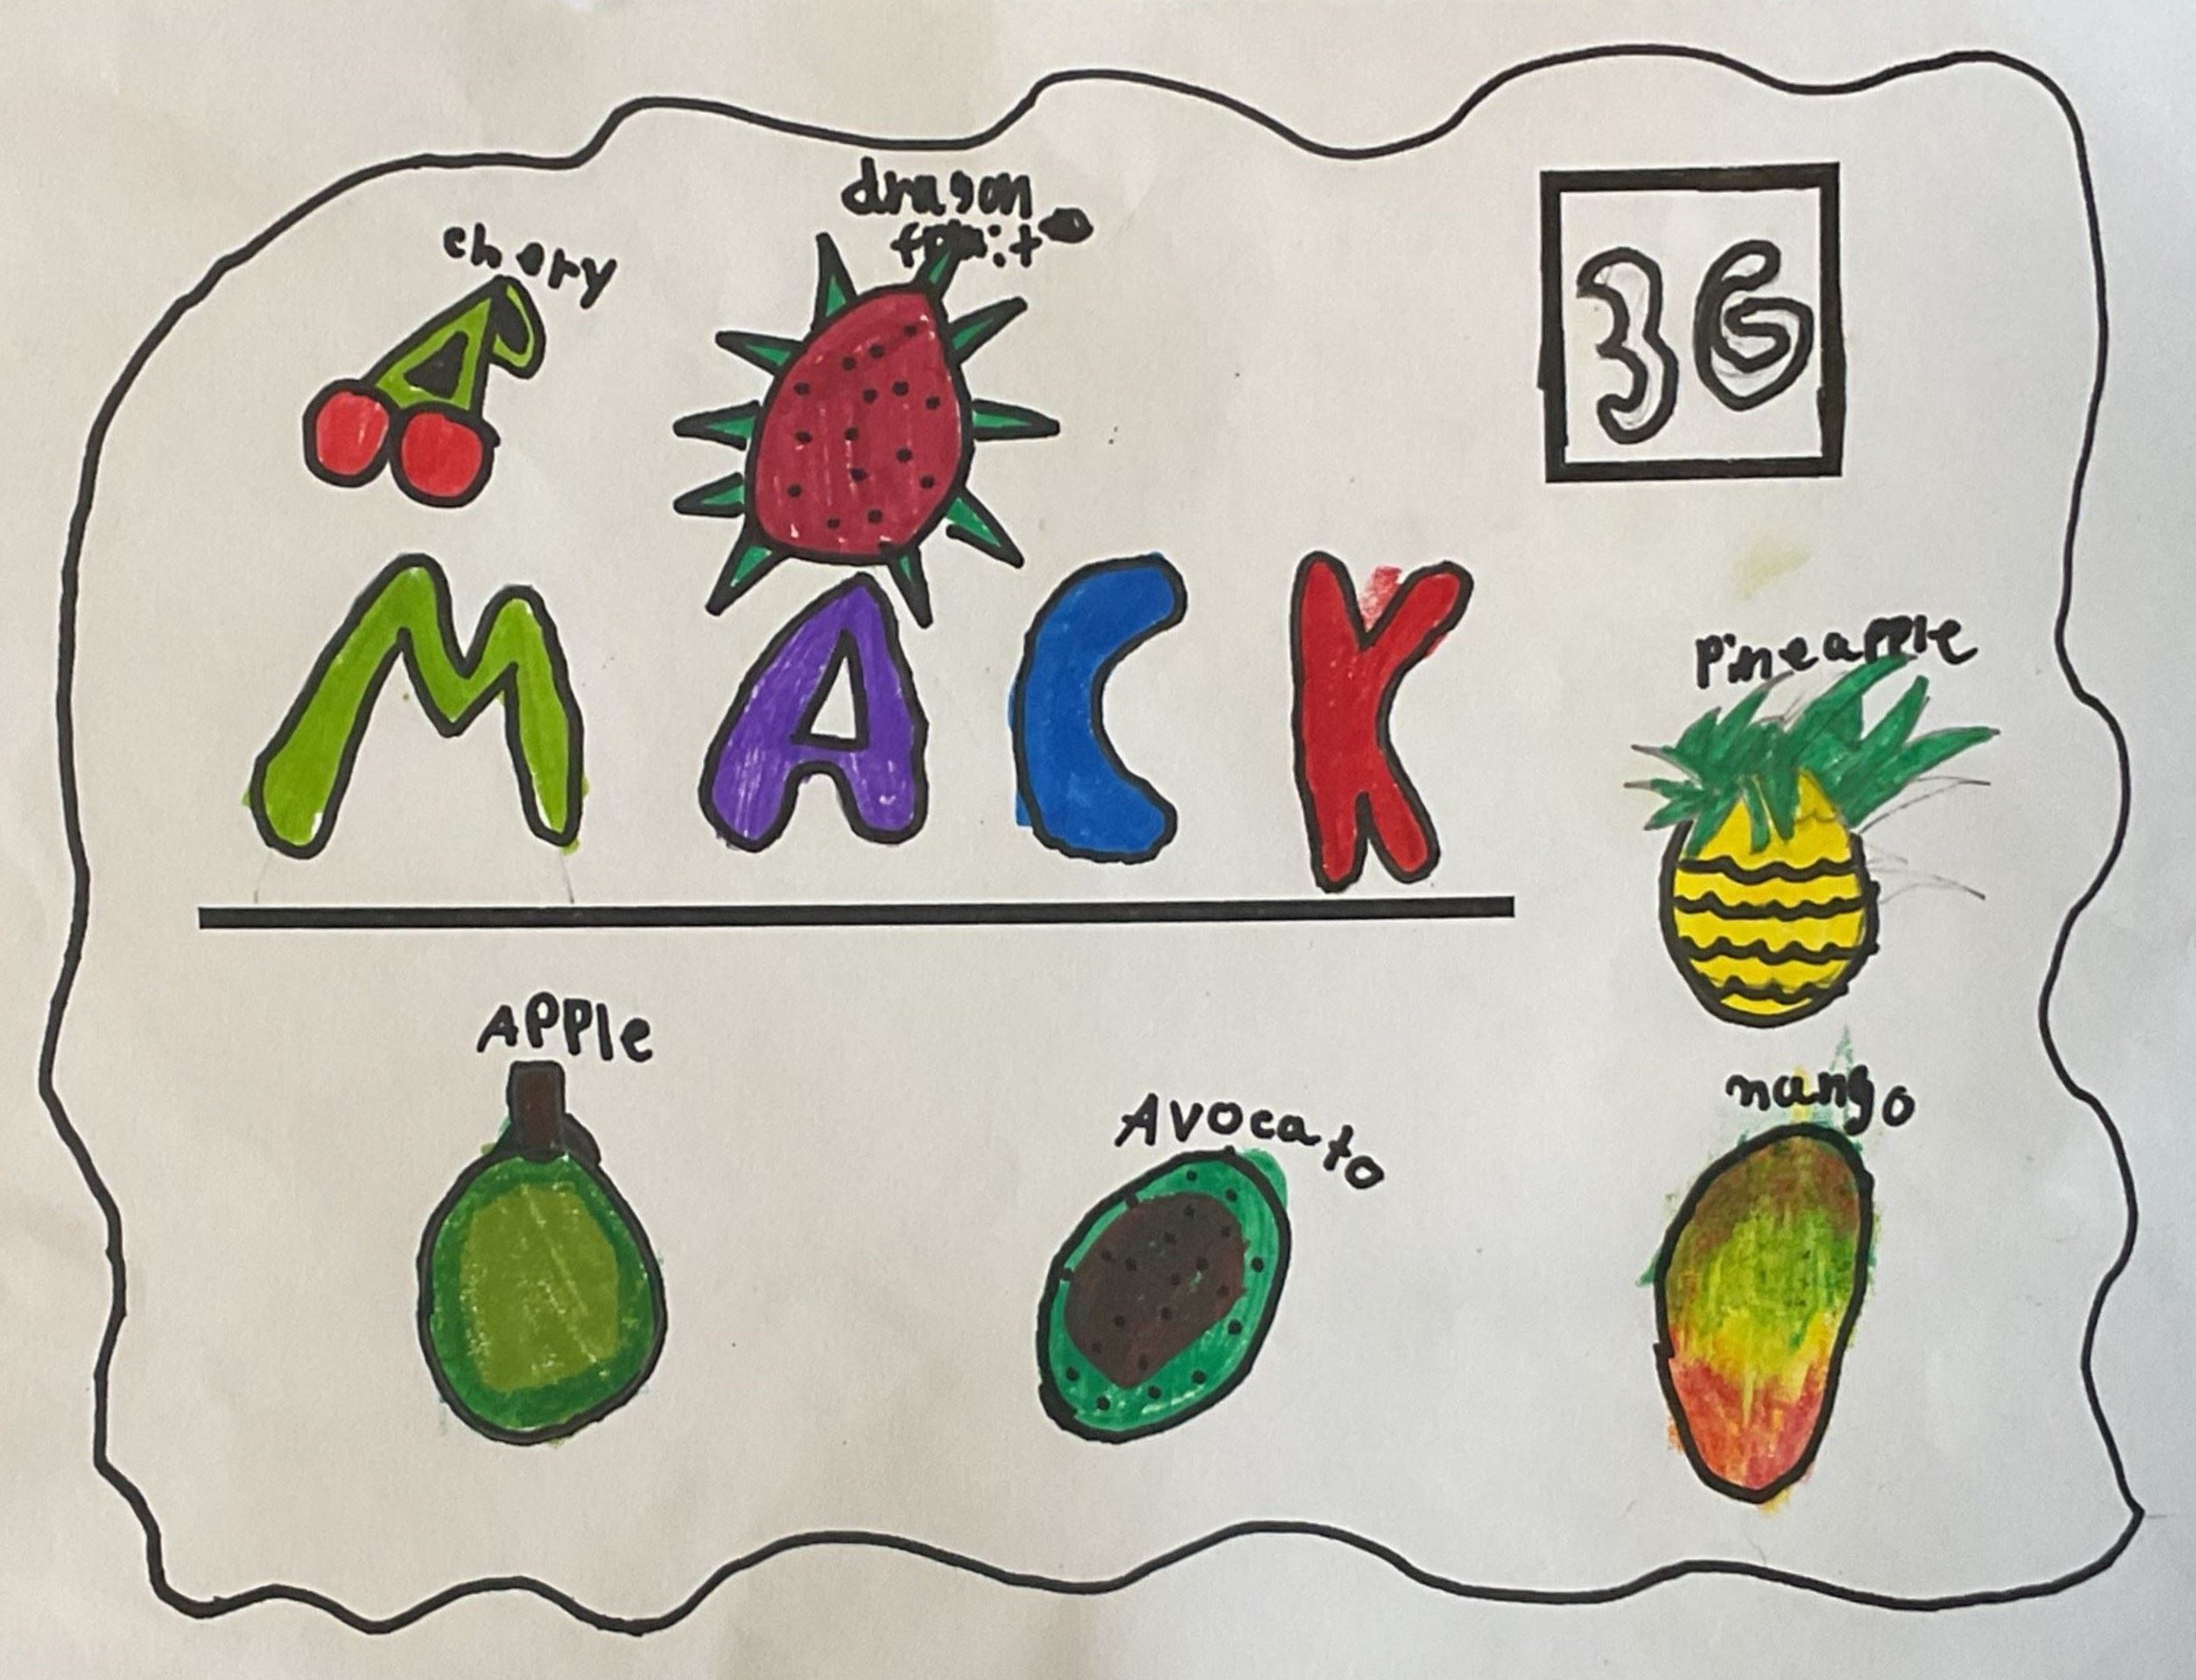 chery
dragon
fruit
3G
MACK
Pineapple
APPle
Avocato
mango